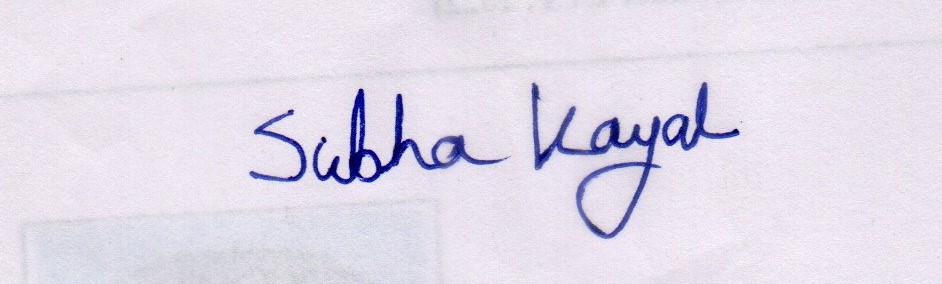 Subha Kayal